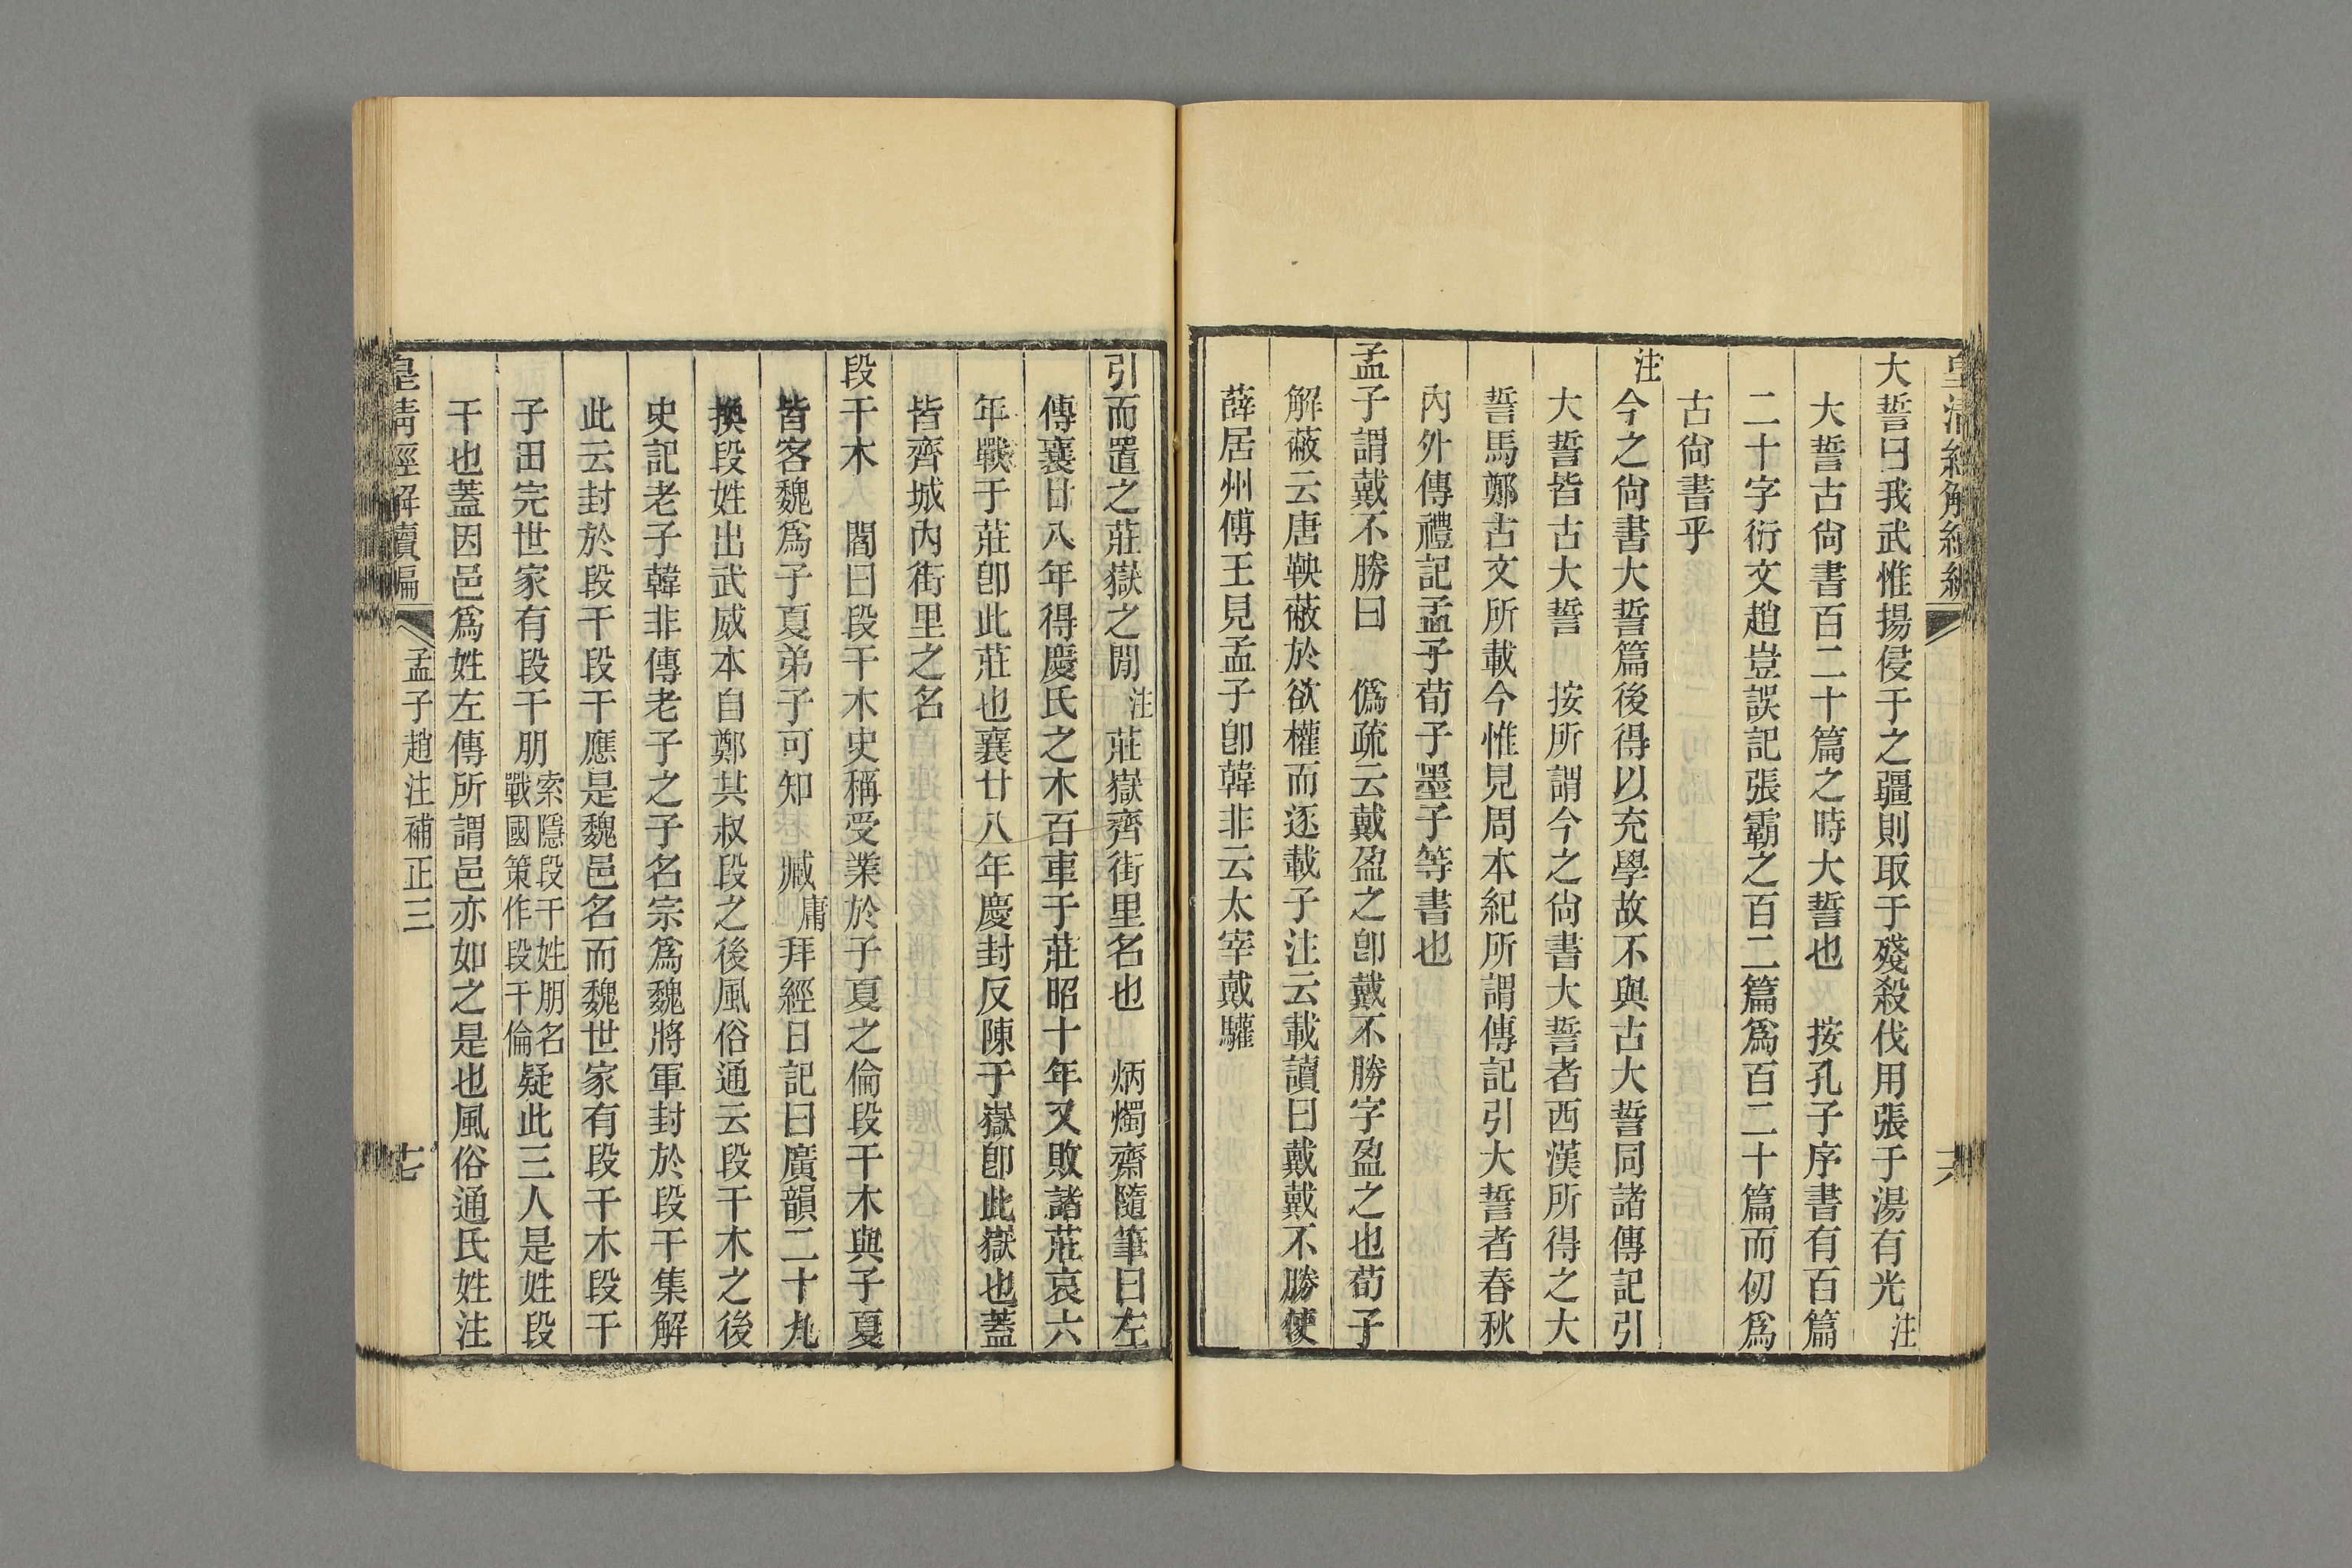 大誓曰我武惟揚侵于之疆則取于殘殺伐用張于湯有光注
大誓古尙書百二十篇之時大誓也 按孔子序書有百篇
二十字衍文趙豈誤記張霸之百二篇爲百二十篇而仞爲
古尙書乎
注今之尙書大誓篇後得以充學故不與古大誓同諸傳記引
大誓皆古大誓 按所謂今之尙書大誓者西漢所得之大
誓馬鄭古文所載今惟見周本紀所謂傳記引大誓者春秋
內外傳禮記孟子荀子墨子等書也
孟子謂戴不勝曰 僞疏云戴盈之卽戴不勝字盈之也荀子
解蔽云唐鞅蔽於欲權而逐載子注云載讀曰戴戴不勝使
薛居州傅王見孟子卽韓非云太宰戴驩
六
引而置之莊嶽之閒注莊嶽齊街里名也 炳燭齋隨筆曰左
傳襄廿八年得慶氏之木百車于莊昭十年又敗諸莊哀六
年戰于莊卽此莊也襄廿八年慶封反陳于嶽卽此嶽也蓋
皆齊城內街里之名
段干木 閻曰段干木史稱受業於子夏之倫段干木與子夏
皆客魏爲子夏弟子可知 臧庸拜經日記曰廣韻二十九
換段姓出武威本自鄭共叔段之後風俗通云段干木之後
史記老子韓非傳老子之子名宗爲魏將軍封於段干集解
此云封於段干段干應是魏邑名而魏世家有段干木段干
子田完世家有段干朋索隱段干姓朋名戰國策作段干倫疑此三人是姓段
干也蓋因邑爲姓左傳所謂邑亦如之是也風俗通氏姓注
皇淸經解續編 孟子趙注補正三 七